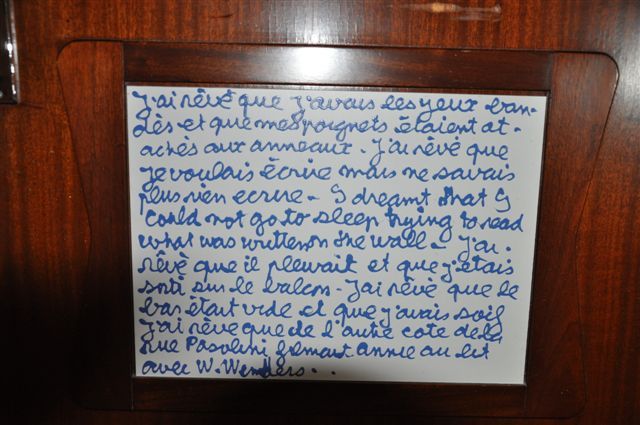 J'ai rêvé que j'avais les yeux ban-
dés et que mes poignets étaient at-
achés aux anneaux. J'ai rêvé que
je voulais écrire mais ne savais
plus rien ecrire - I dreamt that I
could not go to sleep trying to read
what was written on the wall - J'ai
rêvé que il pleuvait et que j'étais
sorti sur le balcon - J'ai rêvé que le
bar était vide et que j'avais soif
J'ai rêve que de l'autre coté de la
rue Pasolini filmait Annie au lit
avec W. Wenders...